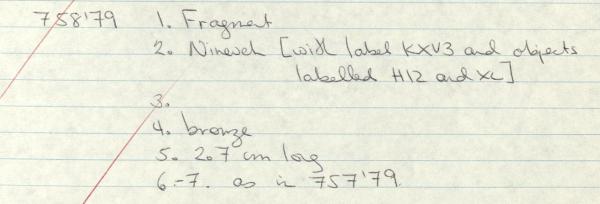 758'79 1. Fragment
2. Nineveh [with label KXV3 and objects
labelled H12 and XL]
3.
4. bronze
5. 2.7 cm long
6.-7. as in 757'79.